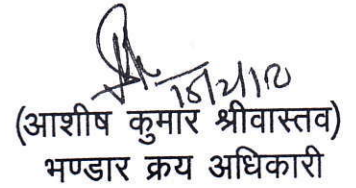 (आशीष कुमार श्रीवास्तव)
भण्डार क्रय अधिकारी